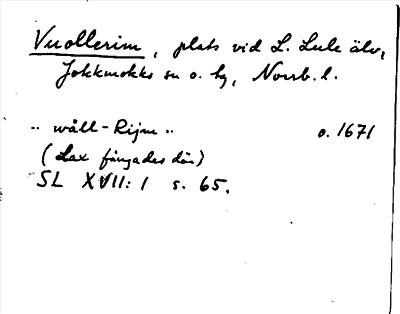 Vuollerim, plats vid L. Lule älv,
Jokkmokks sn o. hg, Norrb. l.
" wåll-Rijm " o. 1671
(Lax fångades där)
SL XVII: 1 s. 65.